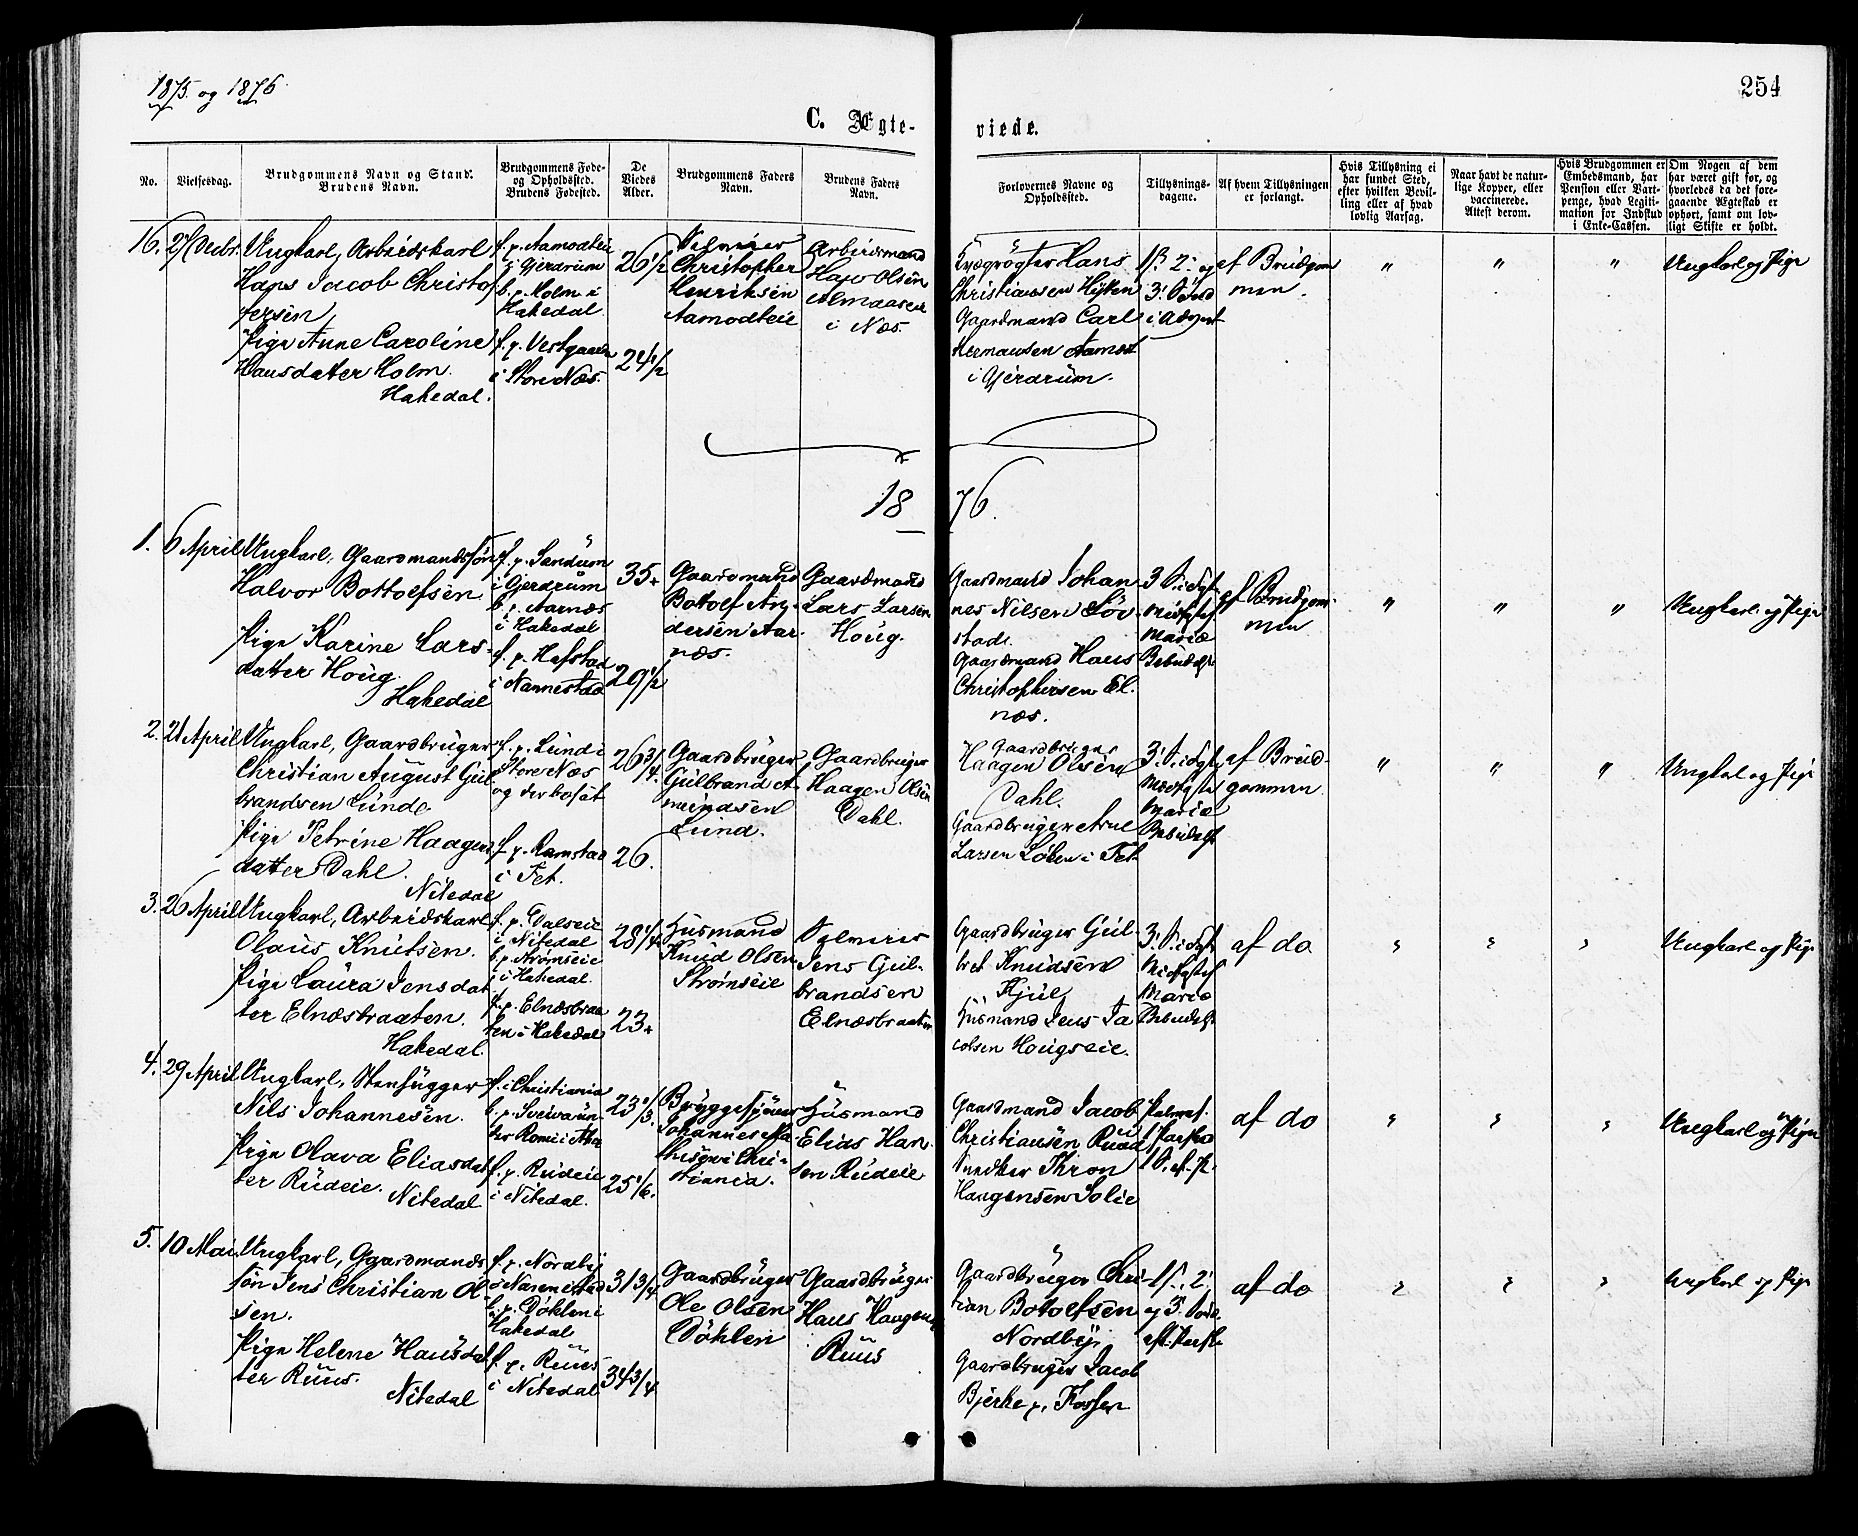 1875 og 1876.
254
C. Ægte-
viede.
No.
Vielsesdag.
Brudgommens Navn og Stand.
Brudens Navn.
Brudgommens Føde-
og Opholdssted.
Brudens Fødested.
De
Viedes
Alder.
Brudgommens Faders
Navn.
Brudens Faders
Navn.
Forlovernes Navne og
Opholdssted.
Tillysnings-
dagene.
Af hvem Tillysningen
er forlangt.
Hvis Tillysning ei
har fundet Sted,
efter hvilken Bevil-
ling eller af hvad
lovlig Aarsag.
Naar havt de natur-
lige Kopper, eller
vaccinerede.
Attest derom.
Hvis Brudgommen er
Embedsmand, har
Pension eller Vart-
penge, hvad Legiti-
mation for Indskud
i Enke-Cassen.
Om Nogen af dem
har været gift før, og
hvorledes da det fore-
gaaende Ægteskab er
ophørt, samt om lov-
ligt Skifte er holdt.
16.
27 Decbr.
Ungkarl, Arbeidskarl
Hans Jacob Christof
fersen
Pige Anne Caroline
Hansdatter Holm.
Hakedal.
f. p. Aamodteie
i Gjerdrum
b. p. Holm i
Hakedal.
f. p. Vestgaard
i Store Næs.
26 1/2
24 1/2
Selveier
Christopher
Henriksen
Aamodteie
Arbeidsmand
Hans Olsen
Almaaseie
i Næs.
Hans
Christiansen
Gaardmand Carl
Hermansen Aamot
i Gjerdrum.
1ste 2. og
3. Sønd
i Advent
af Brudgom
men.
"
"
"
Ungkarl og Pige
18
76.
1.
6 April
Ungkarl, Gaardmandssøn
Halvor Bottolfsen
Pige Karine Lars-
datter Houg.
Hakedal
f. p. Sandum
i Gjerdrum
b. p. Aarnæs
i Hakedal
f. p. Hafstad
i Nannestad
35.
29 1/2
Gaardmand
Bottolf An-
dersen Aar-
næs.
Gaardmand
Lars Larsen
Houg.
Gaardmand Johan-
nes Nilsen Løv-
stad.
Gaardmand Hans
Christophersen El-
næs.
3 S.
Midfaste
Mariæ
Bebudelse
af Brudgom-
men
"
"
"
Ungkarl og Pige
2.
21 April
Ungkarl, Gaardbruger
Christian August Gul
brandsen Lunde
Pige Petrine Haagens
datter Dahl.
Nitedal
f. p. Lund i
Store Næs
og der bosat
f. p. Ramstad
i Fet.
26 3/4.
26.
Gaardbruger
Gulbrand A
mundsen
Lund.
Gaardbruger
Haagen Olsen
Dahl.
Gaardbruger
Haagen Olsen
Dahl.
Gaardbruger Arne
Larsen Løken i Fet
3. S.
Midfaste
Mariæ
Bebudelse
af Brud-
gommen
"
"
"
Ungkarl og Pige
3.
26 April
Ungkarl, Arbeidskarl
Olaus Knutsen.
Pige Laura Jensdat
ter Elnæsbraaten.
Hakedal.
f. p. Dalseie
i Nitedal
b. p. Strømseie
i Hakedal.
f. p. Elnæsbraa
ten i Hakedal
28 1/4
23.
Husmand
Knud Olsen
Strømseie
Selveier
Jens Gul-
brandsen
Elnæsbraaten
Gaardbruger Gul-
brand Knudsen
Kjul
Husmand Jens Ja
cobsen Hougseie.
3. S.
Midfaste
Mariæ
Bebudelse
af do
"
"
"
Ungkarl og Pige
4.
29 April
Ungkarl, Stenhugger
Nils Johannesen.
Pige Olava Eliasdat
ter Rudeie.
Nitedal
f. i Christiania
f. p. Rudeie
i Nitedal.
23 1/3.
25 1/6.
Bryggesjouer
Johannes
i Chri-
stiania.
Husmand
Elias Han
sen Rudeie
Gaardmand Jacob
Christiansen Ruud
Snedker Thron
Haugensen Solie
Palmes.
1 Paaske
1 S. ef. P.
af do
"
"
"
Ungkarl og Pige
5.
10 Mai.
Ungkarl, Gaardmands
søn Jens Christian Ol
sen.
Pige Helene Hansdat
ter Ruus.
Nitedal
f. p. Nordby
i Nannestad
b. p. Døhlen i
Hakedal
f. p. Ruus
i Nitedal
31 3/4
34 3/4
Gaardbruger
Ole Olsen
Døhlen
Gaardbruger
Hans Haagens
Ruus
Gaardbruger Chri-
stian Botolfsen
Nordby
Gaardbruger Jacob
Bjerke p. Fossen
1ste, 2.
og 3. Sønd.
eft. Paaske
af do
"
"
"
Ungkarl og Pige